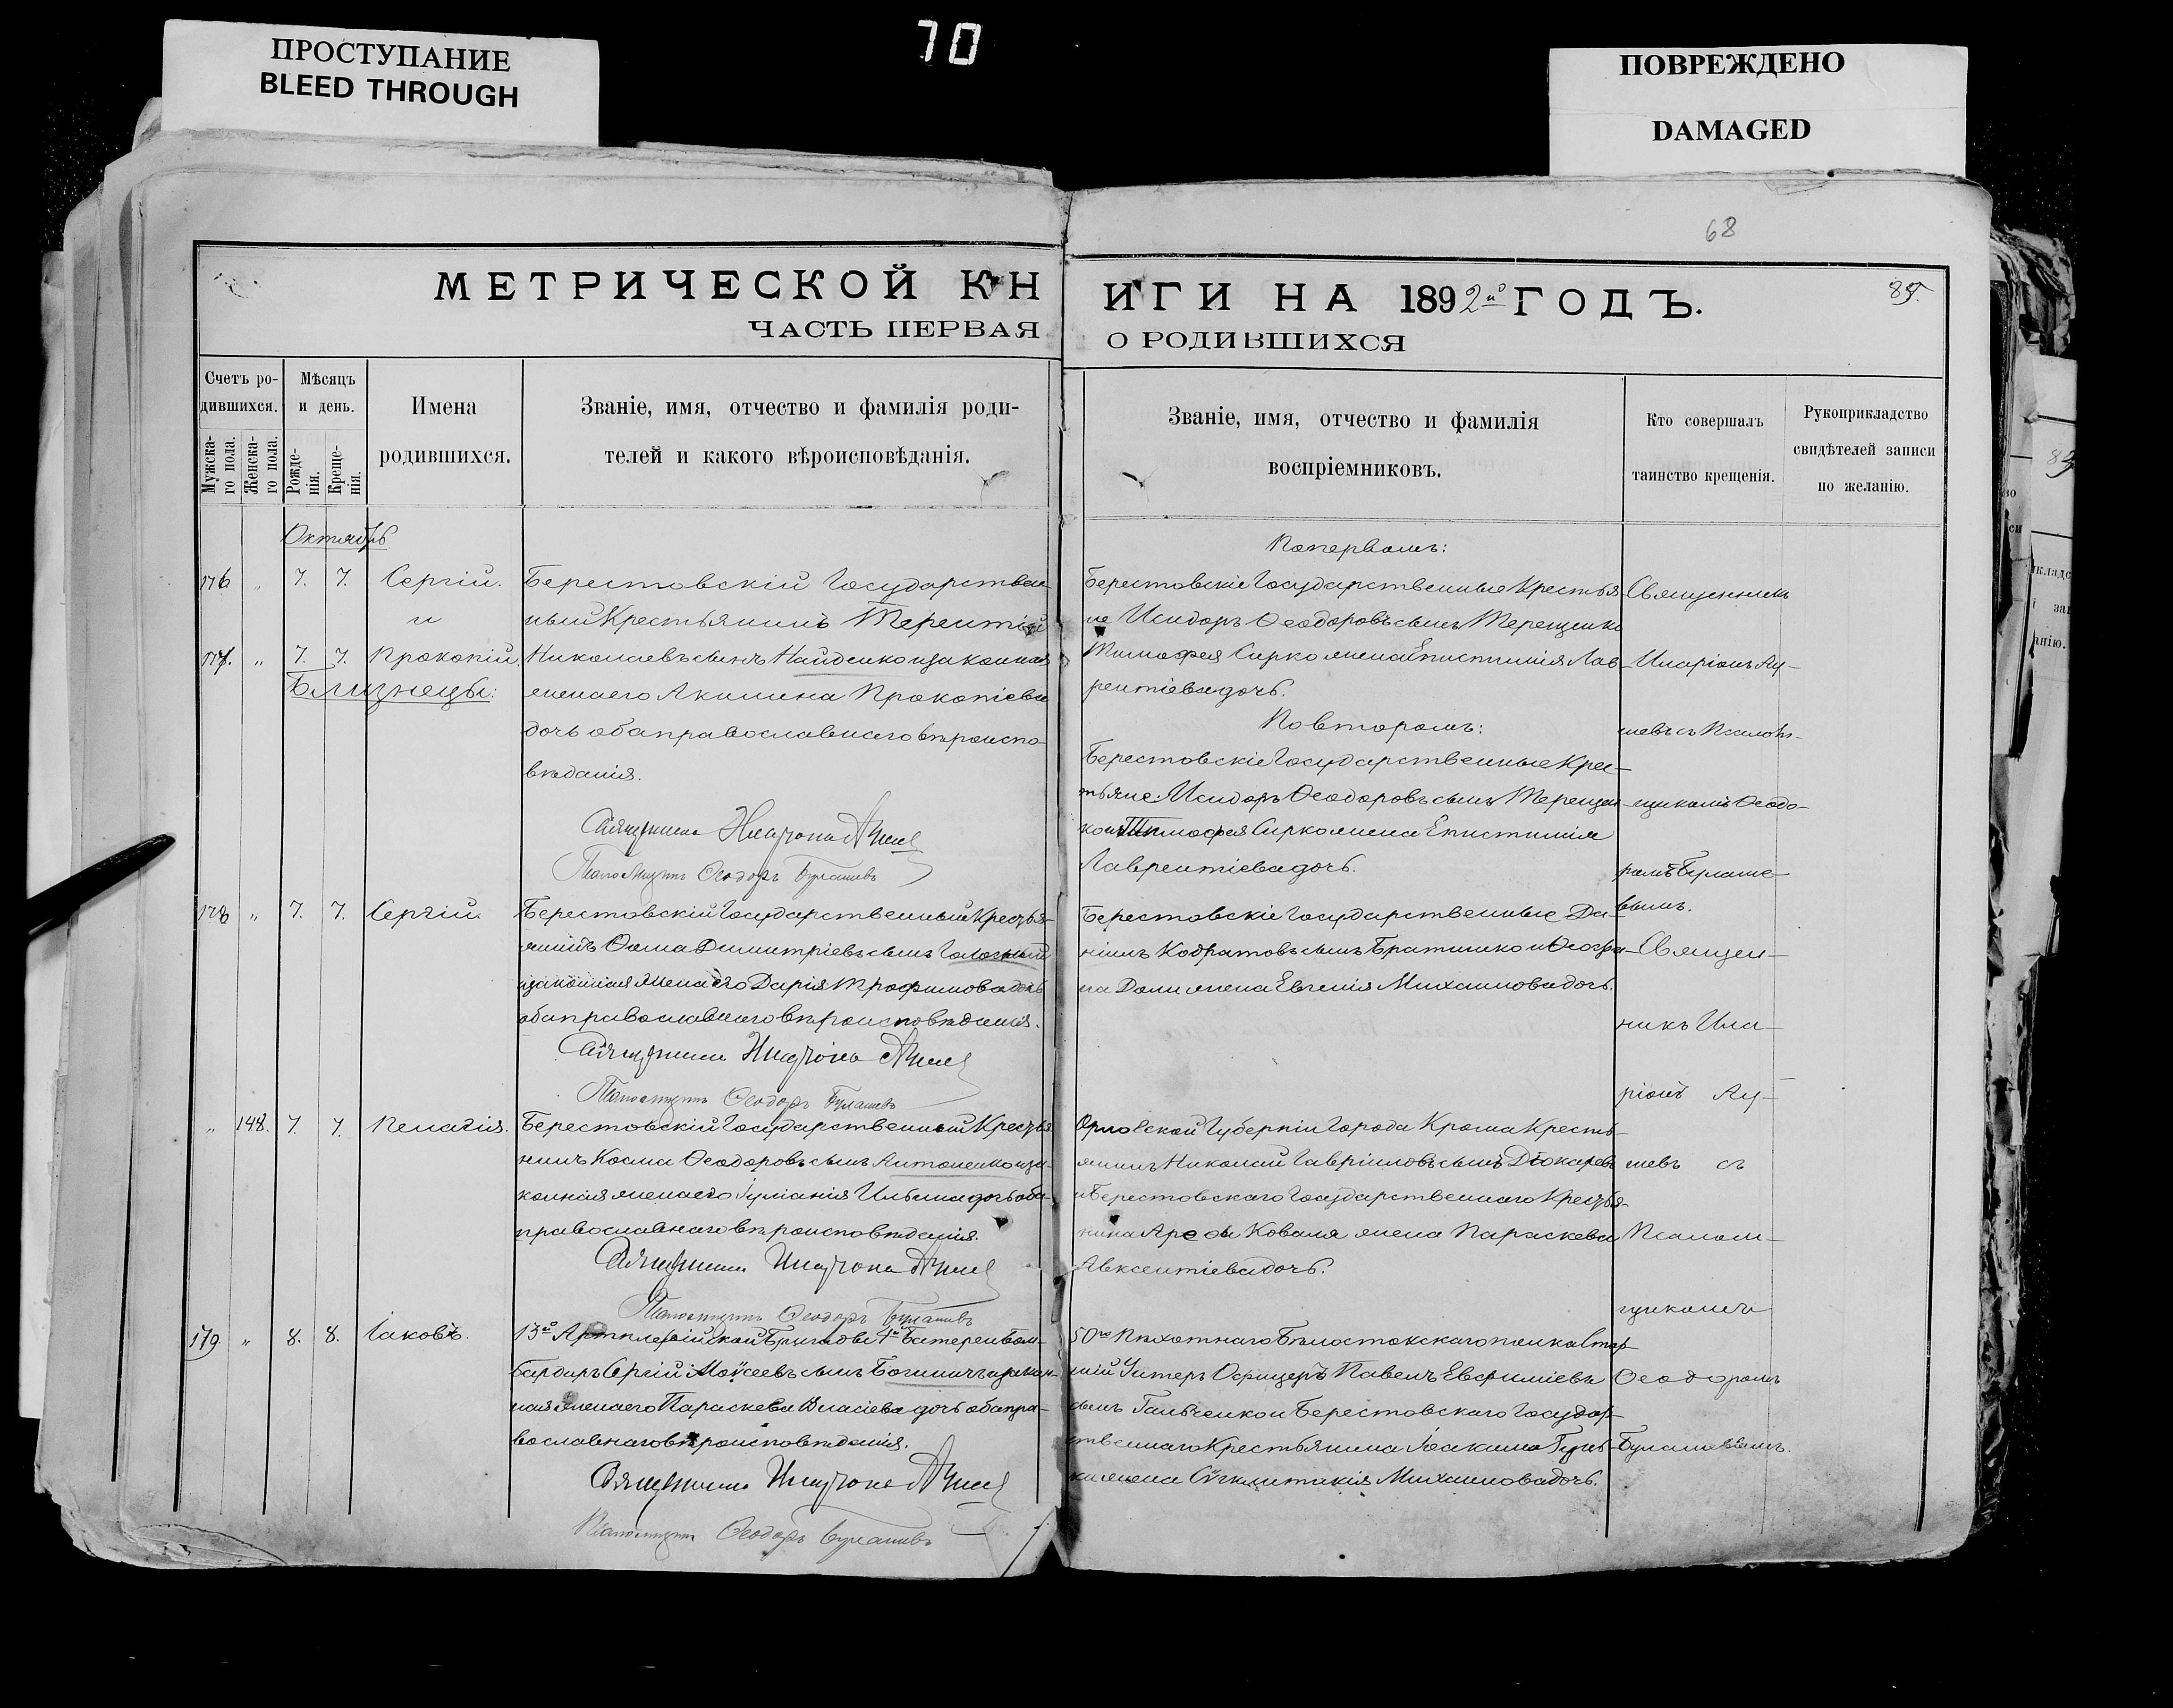 ПРОСТУПАНИЕ
BLEED THROUGH
70
ПОВРЕЖДЕНО
DAMAGED
68
85.
МЕТРИЧЕСКОЙ КН
ИГИ НА 1892й ГОДЪ.
ЧАСТЬ ПЕРВАЯ
О РОДИВШИХСЯ
Счетъ ро-
дившихся.
Мужска-
го пола.
Женска-
го пола.
Мѣсяцъ
и день.
Рожде-
нія.
Креще-
нія.
Имена
родившихся.
Званіе, имя, отчество и фамилія роди-
телей и какого вѣроисповѣданія.
Званіе, имя, отчество и фамилія
воспріемниковъ.
Кто совершалъ
таинство крещенія.
Рукоприкладство
свидѣтелей записи
по желанію.
Октябрь
176 " 7. 7. Сергій.
и
177. " 7. 7. Прокопій.
Близнецы:
Берестовскій Государствен-
ный Крестьянинъ Терентій
Николаевъ сынъ Найденко и законная
жена его Акилина Прокопіева
дочь оба православнаго вѣроиспо-
вѣданія.
Священникъ Иларіонъ
Псаломщикъ Ѳеодоръ Булашевъ
Поперволъ:
Берестовскіе Государственные Крестья-
не Исидоръ Ѳеодоровъ сынъ Терещенко
Тимофея Сирко жена Епистимія Лав-
рентіева дочь.
Повторолъ:
Берестовскіе Государственные Крес-
тьяне: Исидоръ Ѳеодоровъ сынъ Терещен-
ко и Тимофея Сирко жена Епистимія
Лаврентіева дочь.
Священникъ
Иларіонъ
съ Псалом-
щикомъ Ѳеодо-
ромъ Булаше-
вымъ.
178 " 7. 7. Сергій.
Берестовскій Государственный Крестья-
нинъ Ѳома Димитріевъ сынъ
и законная жена его Дарія Трофимова дочь
оба православнаго вѣроисповѣданія.
Священникъ Иларіонъ
Псаломщикъ Ѳеодоръ Булашевъ
Берестовскіе Государственные Да-
ніилъ сынъ Братишко и
жена Евгенія Михаилова дочь.
Священ-
никъ Ила-
ріонъ
" 148. 7. 7. Пелагія.
Берестовскій Государственный Крестья-
нинъ Косма Ѳеодоровъ сынъ Антоненко и за-
конная жена его Іуліанія Ильина дочь оба
православнаго вѣроисповѣданія.
Священникъ Иларіонъ
Псаломщикъ Ѳеодоръ Булашевъ
Орловской Губерніи Города Крома Кресть-
янинъ Николай Гавріиловъ сынъ Дюкаревъ
и Берестовскаго Государственнаго Крестья-
нина Коваля жена Параскева
Авксентіева дочь.
съ
Псалом-
щикомъ
179. " 8. 8. Іаковъ.
13й Артилерійской Бригады 4й Батереи Бом-
бардиръ Сергій Моѵсеевъ сынъ и закон-
ная жена его Параскева Власіева дочь оба пра-
вославнаго вѣроисповѣданія.
Священникъ Иларіонъ
Псаломщикъ Ѳеодоръ Булашевъ
50го Пѣхотнаго Бѣлостокскаго полка Стар-
шій Унтеръ Офицеръ Павелъ Евфиміевъ
сынъ Гальченко и Берестовскаго Государ-
ственнаго Крестьянина Іоакима
жена Михаилова дочь.
Ѳеодоромъ
Булашевымъ.